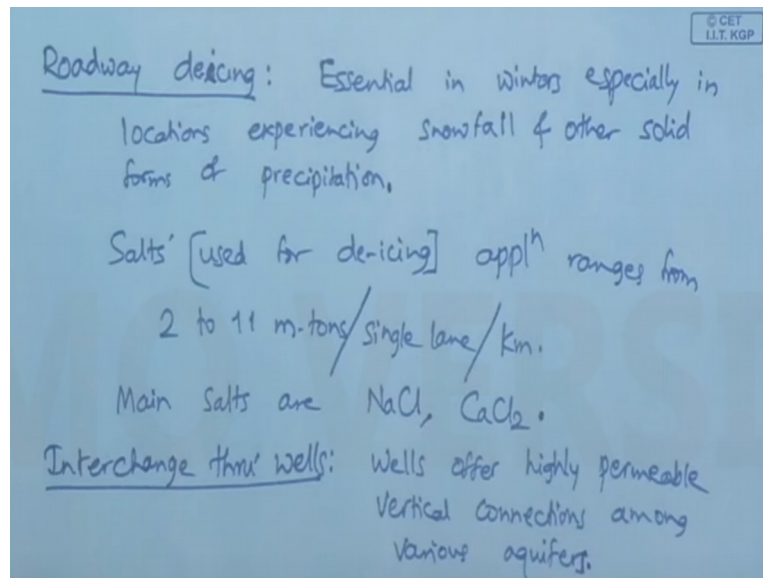 © CET
I.I.T. KGP
Roadway deicing: Essential in winters especially in
locations experiencing snowfall & other solid
forms of precipitation.
Salts' [used for de-icing] applⁿ ranges from
2 to 11 m-tons/single lane/km.
Main salts are NaCl, CaCl₂.
Interchange thru' wells: Wells offer highly permeable
vertical connections among
various aquifers.
MO VERSI